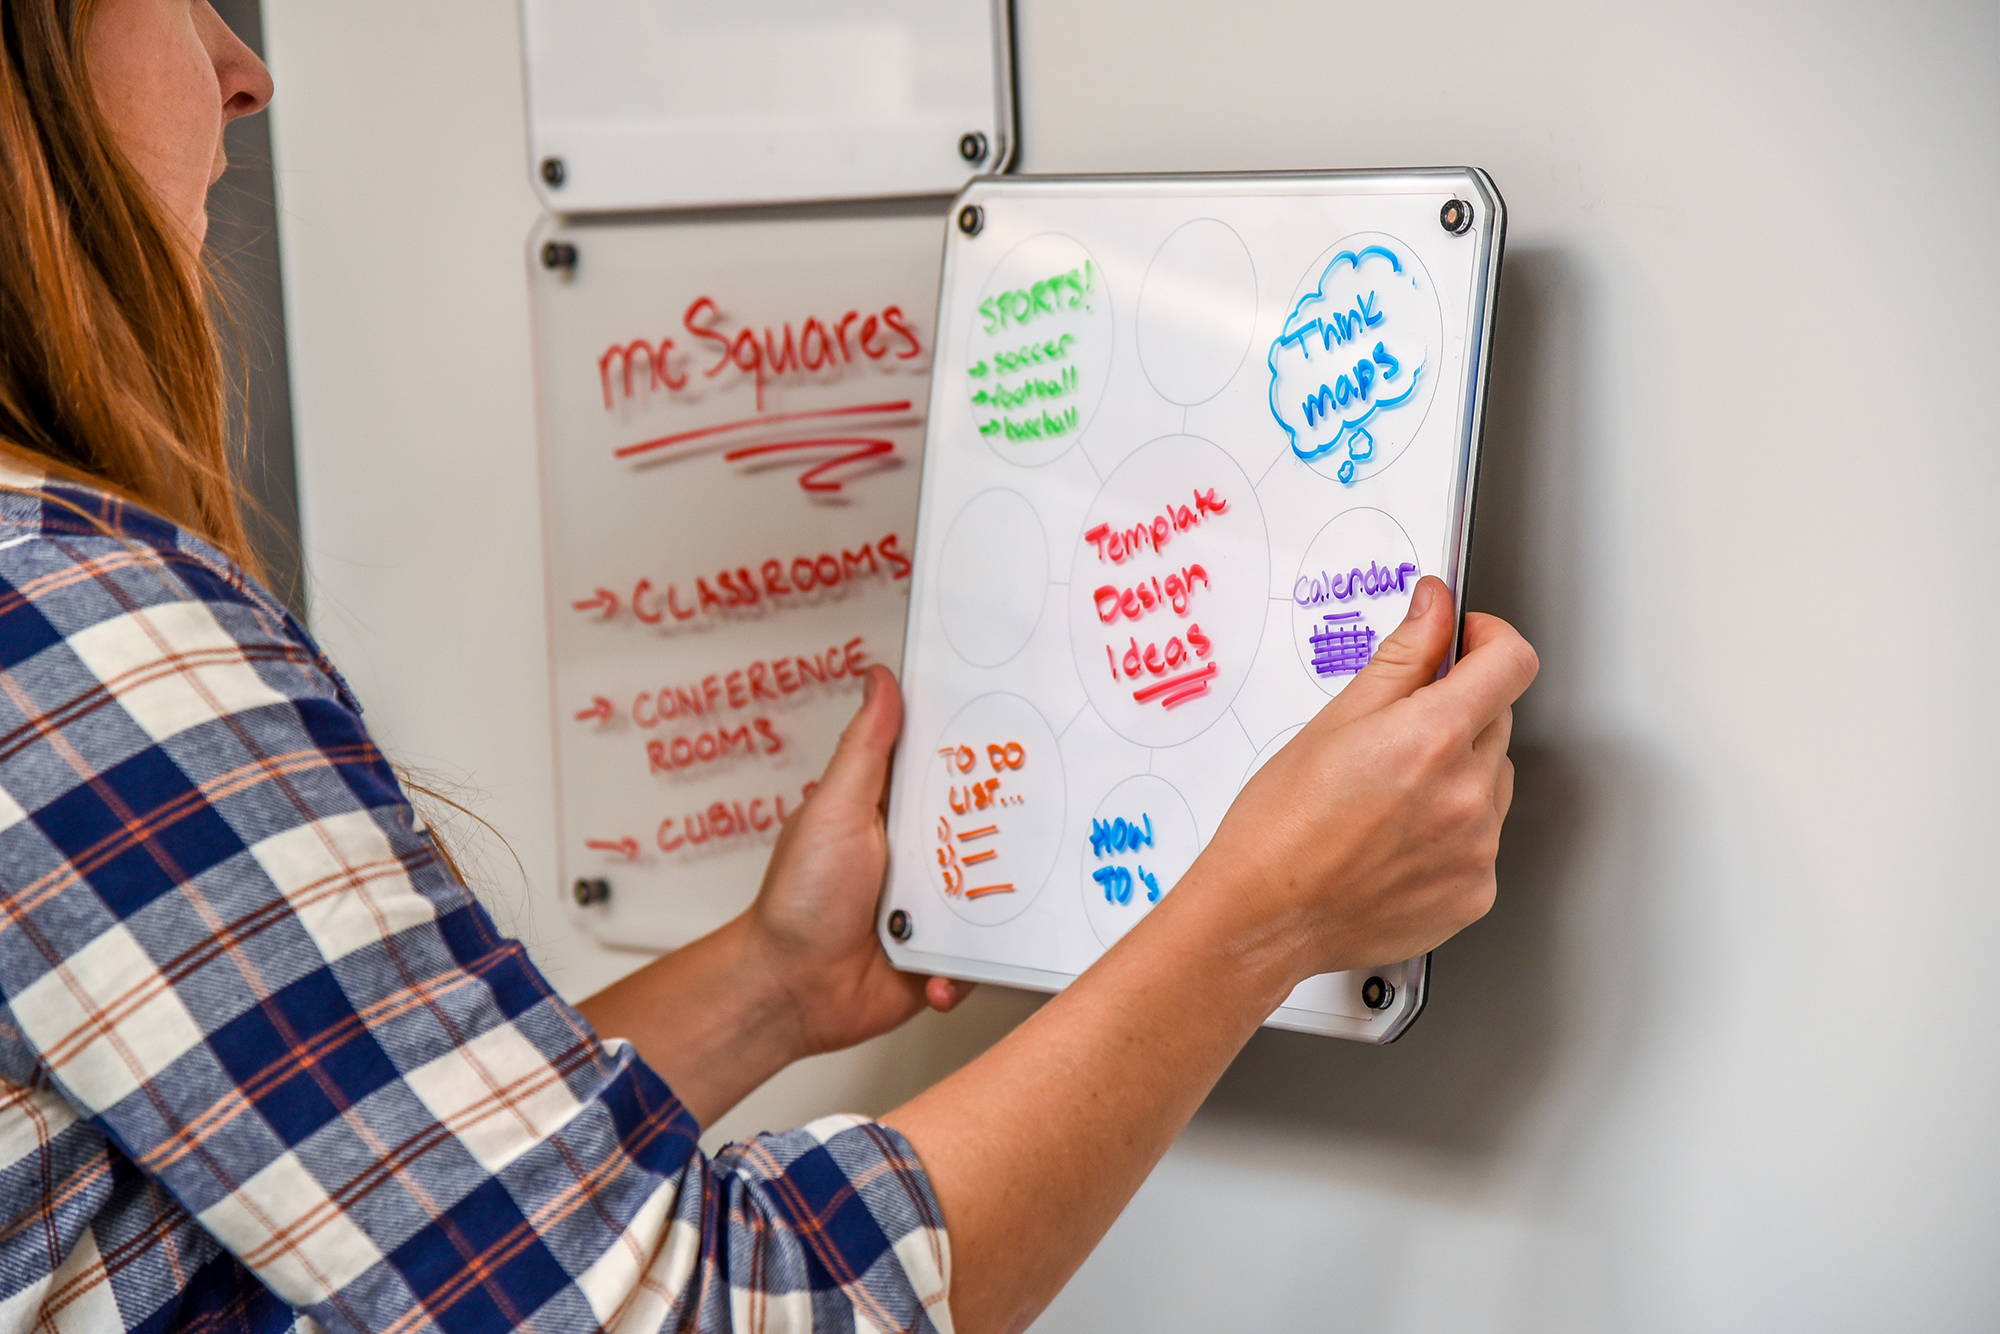 mcSquares
→ CLASSROOMS
→ CONFERENCE
ROOMS
→
SPORTS!
→ soccer
→ football
→ baseball
Think
maps
Template
Design
Ideas
Calendar
TO DO
LIST...
1)
2)
3)
HOW
TO's